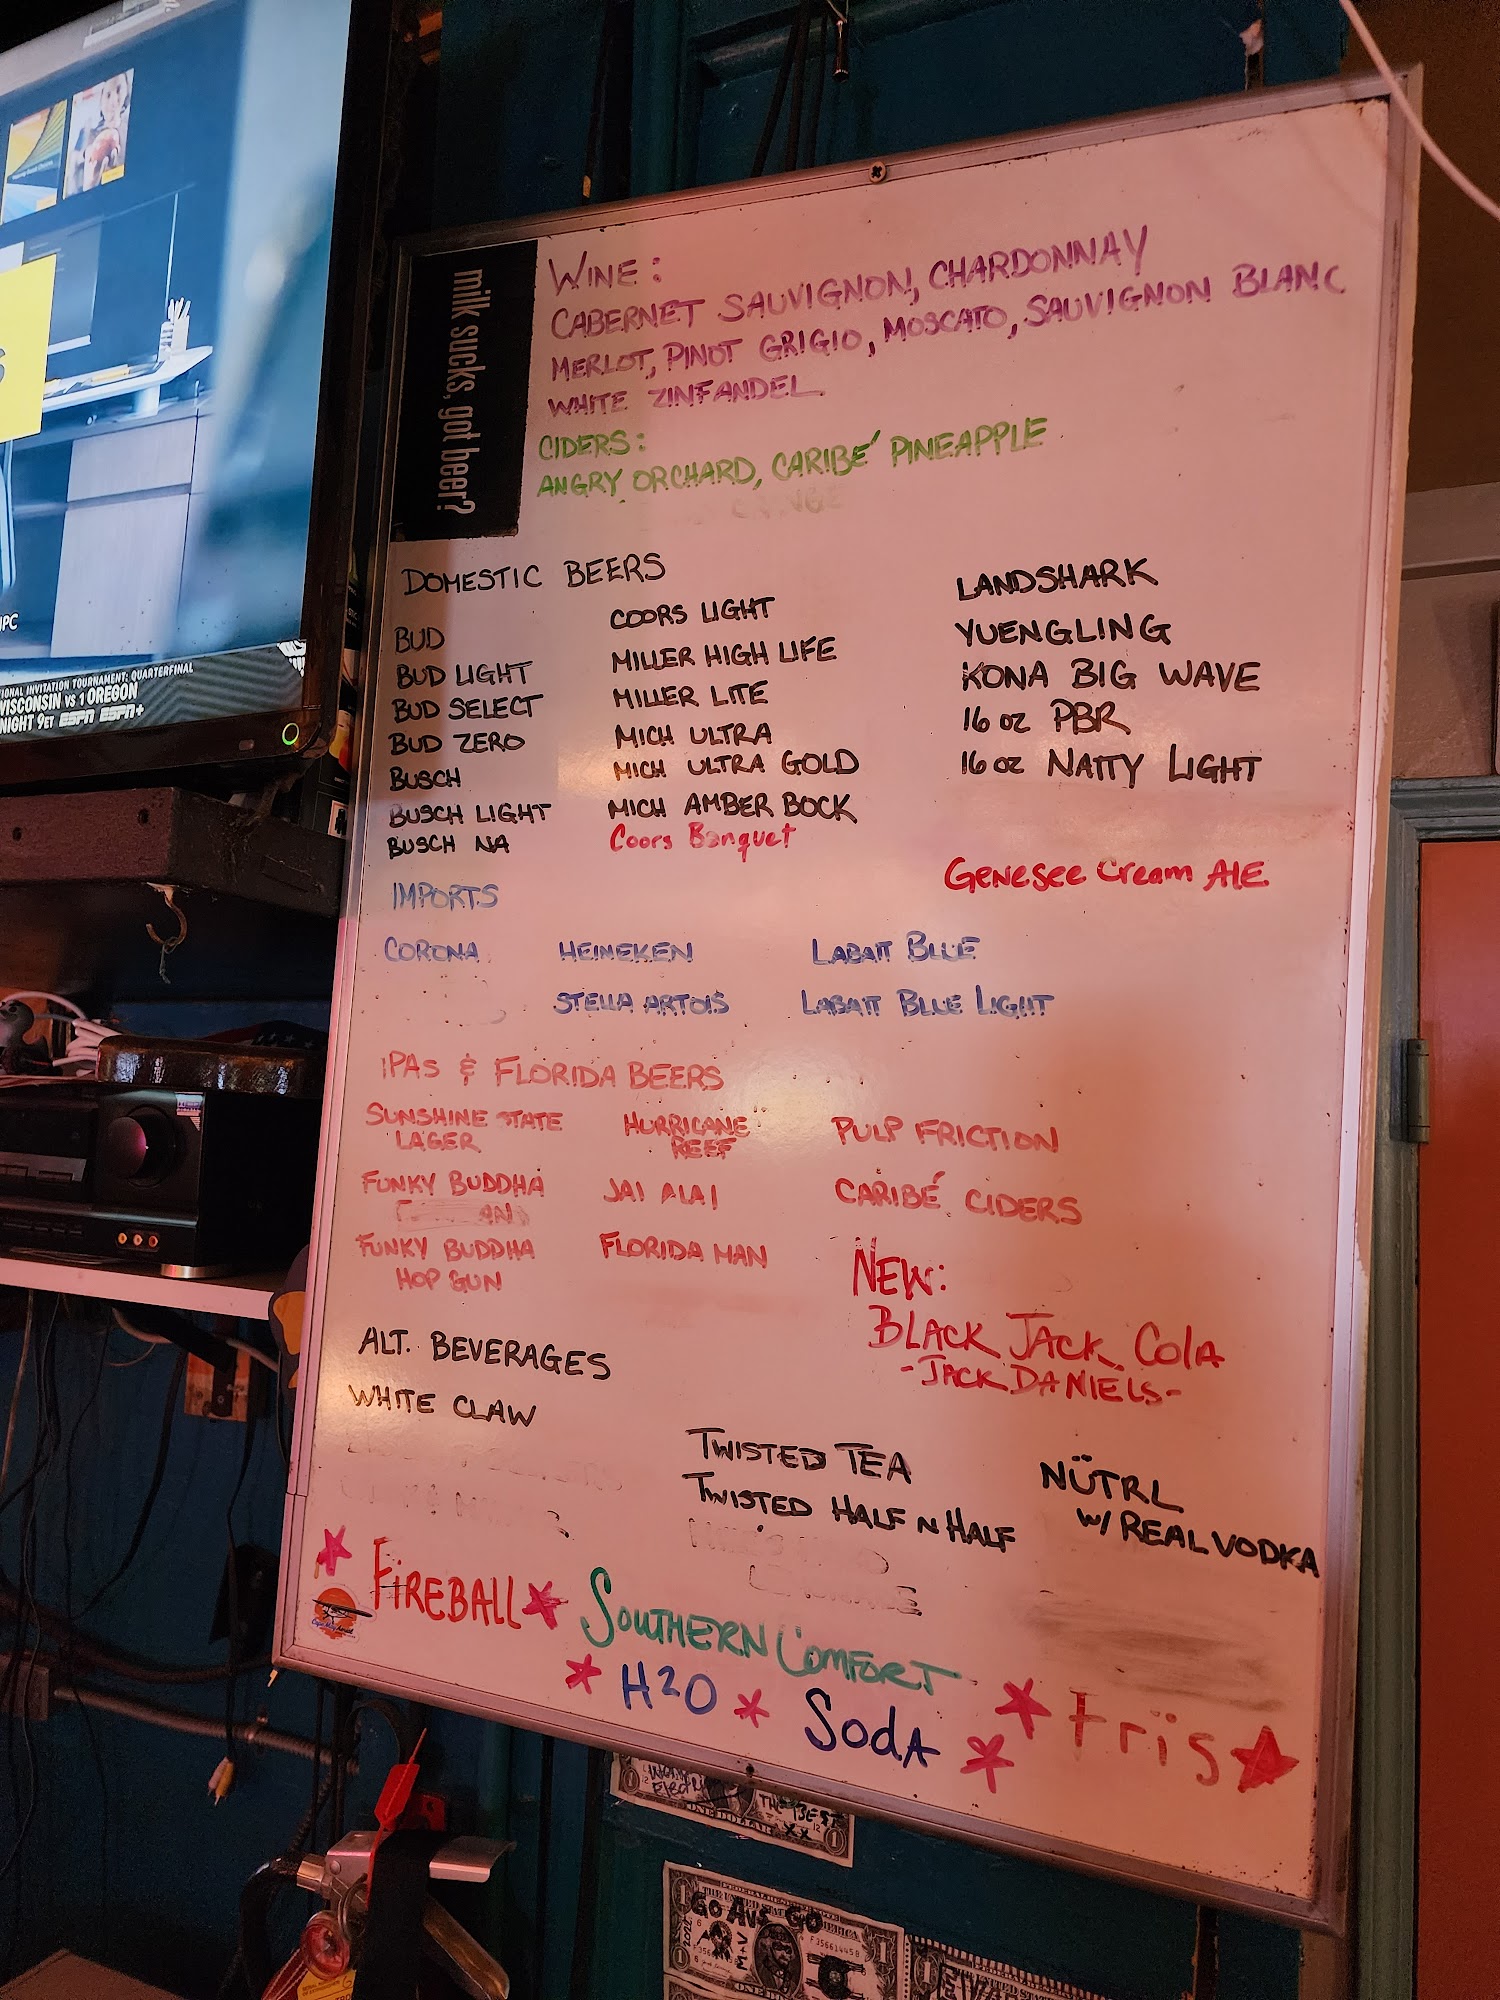 milk sucks, got beer?
WINE:
CABERNET SAUVIGNON, CHARDONNAY
MERLOT, PINOT GRIGIO, MOSCATO, SAUVIGNON BLANC
WHITE ZINFANDEL
CIDERS:
ANGRY ORCHARD, CARIBÉ PINEAPPLE
DOMESTIC BEERS
BUD
BUD LIGHT
BUD SELECT
BUD ZERO
BUSCH
BUSCH LIGHT
BUSCH NA
COORS LIGHT
MILLER HIGH LIFE
MILLER LITE
MICH ULTRA
MICH ULTRA GOLD
MICH AMBER BOCK
Coors Banquet
LANDSHARK
YUENGLING
KONA BIG WAVE
16 oz PBR
16 oz NATTY LIGHT
Genesee Cream ALE
IMPORTS
CORONA
HEINEKEN
LABATT BLUE
STELLA ARTOIS
LABATT BLUE LIGHT
IPAS & FLORIDA BEERS
SUNSHINE STATE
LAGER
HURRICANE
REEF
PULP FRICTION
FUNKY BUDDHA
JAI ALAI
CARIBÉ CIDERS
FUNKY BUDDHA
HOP GUN
FLORIDA MAN
NEW:
BLACK JACK COLA
-JACK DANIELS-
ALT. BEVERAGES
WHITE CLAW
TWISTED TEA
TWISTED HALF N HALF
NÜTRL
W/ REAL VODKA
FIREBALL
SOUTHERN COMFORT
H2O
SODA
frïs
VISCONSIN VS 1 OREGON
NIGHT 9ET ESPN ESPN+
IONAL INVITATION TOURNAMENT: QUARTERFINAL
THE BEST
XX
ONE DOLLAR
GO AVS GO
M+V